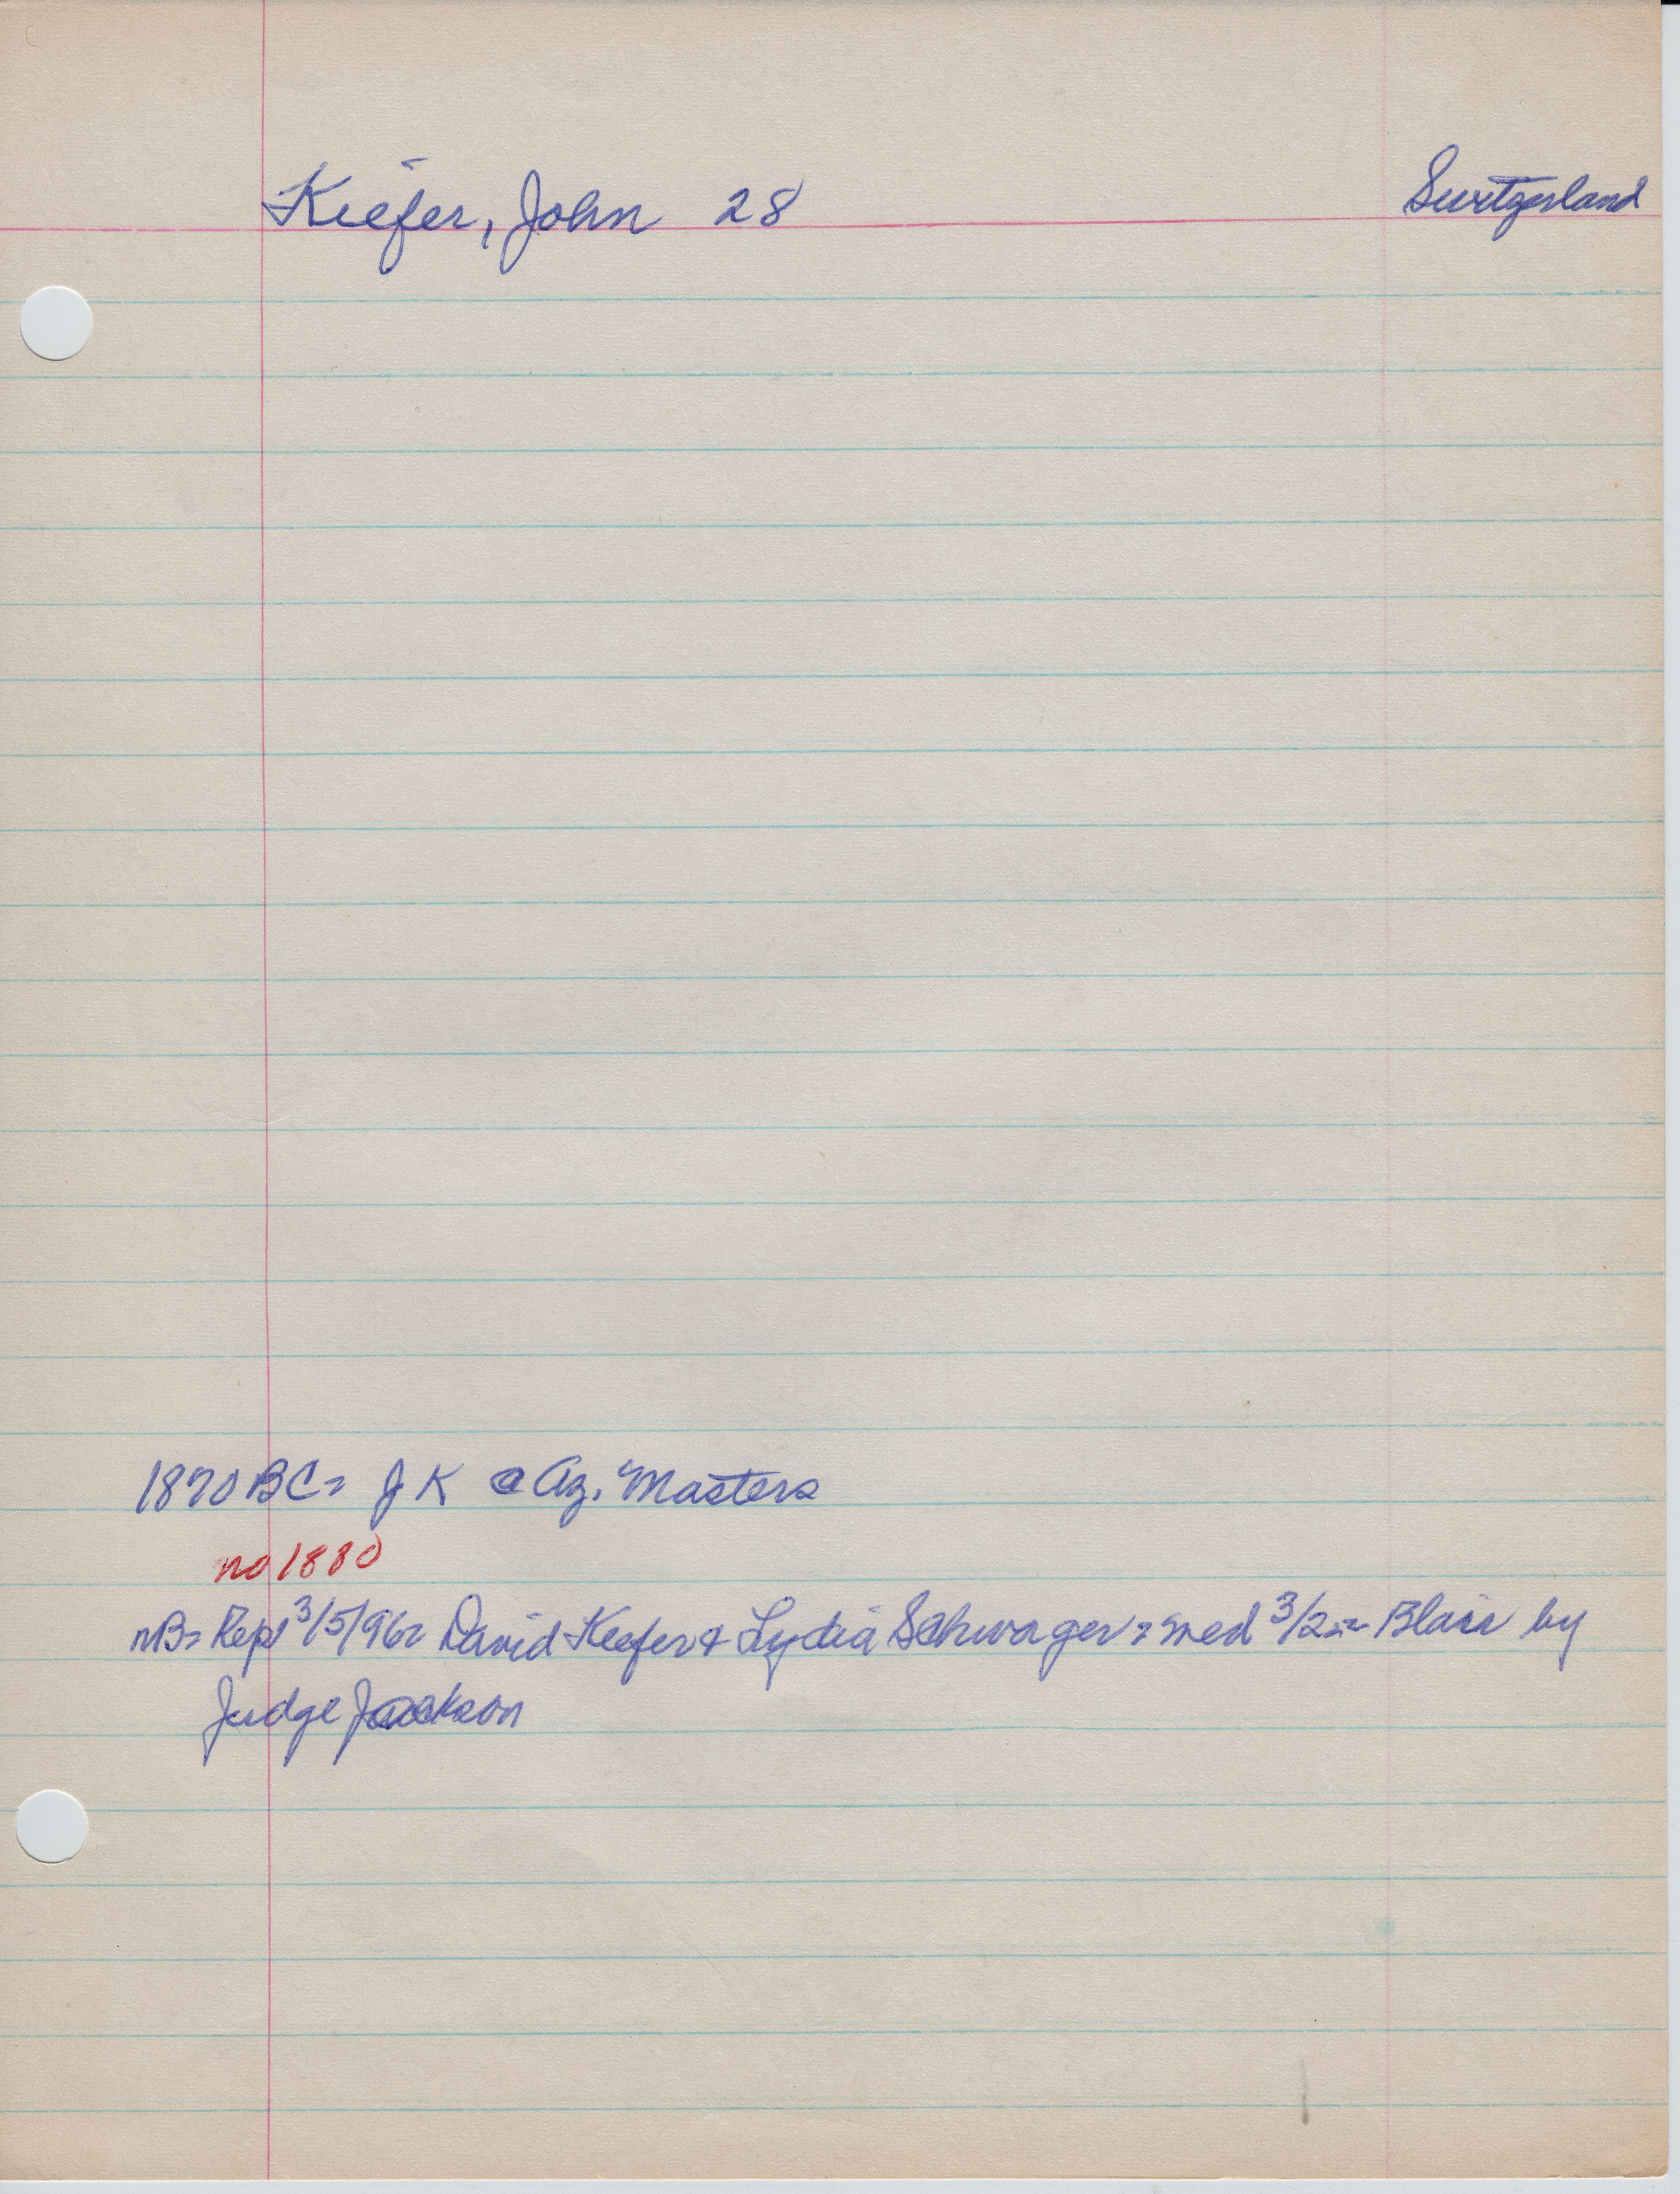 Kiefer, John 28 Switzerland
1870 BC= J K @ Ag. Masters
no 1880
NB= Repl 3/5/96= David Keefer & Lydia Schwager = med 3/2 = Blair by
Judge Jackson